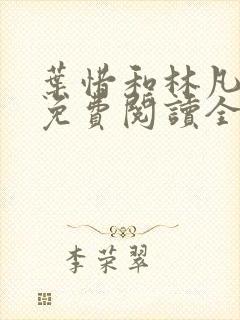 葉惜和林凡
免費閱讀全
李荣翠